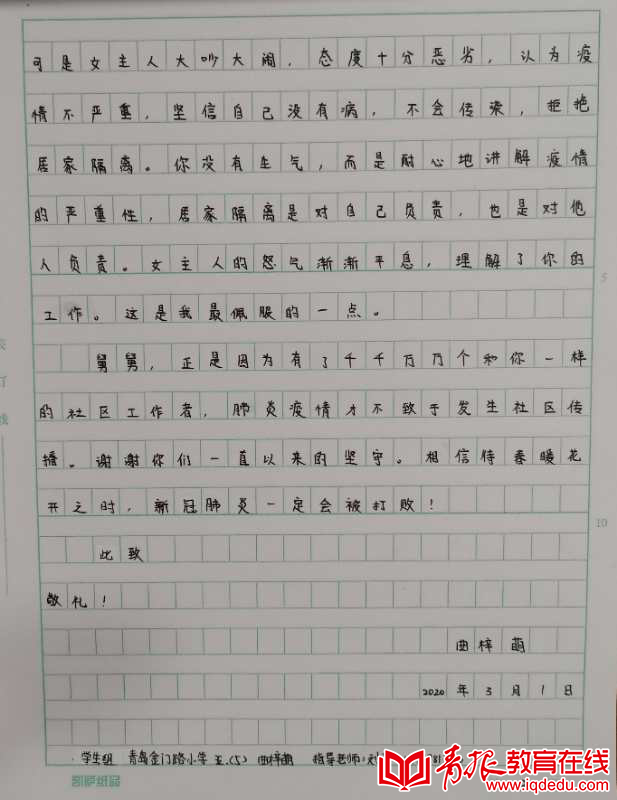 可是女主人大吵大闹，态度十分恶劣，认为疫
情不严重，坚信自己没有病，不会传染，拒绝
居家隔离。你没有生气，而是耐心地讲解疫情
的严重性，居家隔离是对自己负责，也是对他
人负责。女主人的怒气渐渐平息，理解了你的
工作。这是我最佩服的一点。
舅舅，正是因为有了千千万万个和你一样
的社区工作者，肺炎疫情才不致于发生社区传
播。谢谢你们一直以来的坚守。相信待春暖花
开之时，新冠肺炎一定会被打败！
此致
敬礼！
曲梓萌
2020年3月1日
学生组 青岛金门路小学 五.(5) 曲梓萌 指导老师:
5
10
订
线
青报教育在线
www.iqdedu.com